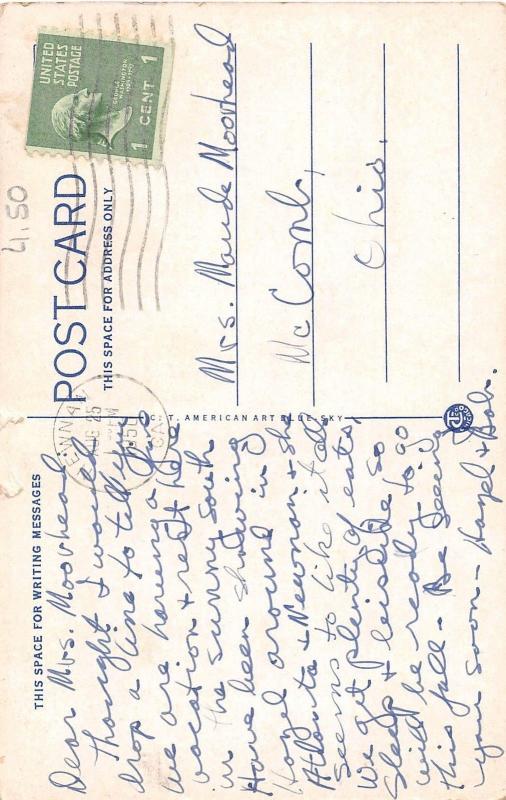 THIS SPACE FOR WRITING MESSAGES
Dear Mrs. Moorhead
Thought I would
drop a line to tell you
We are having a fine
vacation & rest here
in the sunny South
Have been showing
Hazel around in
Atlanta & Newnan & she
seems to like it all
We get plenty of eats,
sleep & leisure so
will be ready to go
this fall - Be seeing
you soon - Hazel & Bob.
C. T. AMERICAN ART BLUE-SKY
AUG 25
1950
GA
POST CARD
THIS SPACE FOR ADDRESS ONLY
4.50
UNITED
STATES
POSTAGE
GEORGE
WASHINGTON
1 CENT 1
Mrs. Maude Moorhead
Mc Comb,
Ohio.